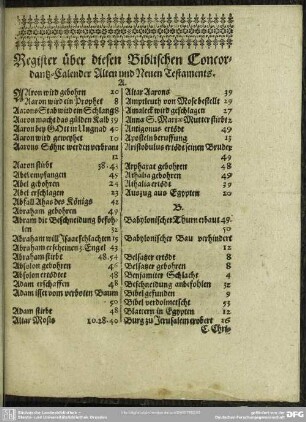 Register über diesen Biblischen Concor-
dantz-Calender Alten und Neuen Testaments.
A.
AAron wird gebohren 20
Aaron wird ein Prophet 8
Aarons Stab wird ein Schlang 8
Aaron macht das gülden Kalb 39
Aaron bey GOtt in Ungnad 40
Aaron wird geweyhet 10
Aarons Söhne werden verbrant
Aaron stirbt
Abel empfangen 45
Abel gebohren 24
Abel erschlagen 23
Abfall Ahas des Königs 42
Abraham gebohren 49
Abram die Bescheidung befoh-
len 52
Abraham will Isaac schlachten 15
Abraham erscheinen 3. Engel 43
Abraham stirbt 48.54
Absolon gebohren
Absolon ertödtet 48
Adam erschaffen 48
Adam isset vom verboten Baum
Adam stirbt 48
Altar Mosis 10.28.40
Altar Aarons 39
Ampt
Mose bestellt 29
Amaleck wird geschlagen 27
Anna S. Mari Mutter stirbt
Antigonus ertödt 49
Apostein beruffung 23
Aristobulus ertödt seinen Bruder
49
Arphaxat gebohren 48
Athalia gebohren 49
Athalia ertödt 39
Auszug aus Egypten 20
B.
Babylonischer Thurn erbaut 49.
50
Babylonischer Bau verhindert
12
Belsatzer ertödt 8
Belsatzer gebohren 8
Benjamiter Schlacht 4
Beschneidung anbefohlen 52
Bibel gefunden 9
Bibel verdolmetscht 55
Blattern in Egypten 12
Burg zu Jerusalem erobert 26
C. Chris